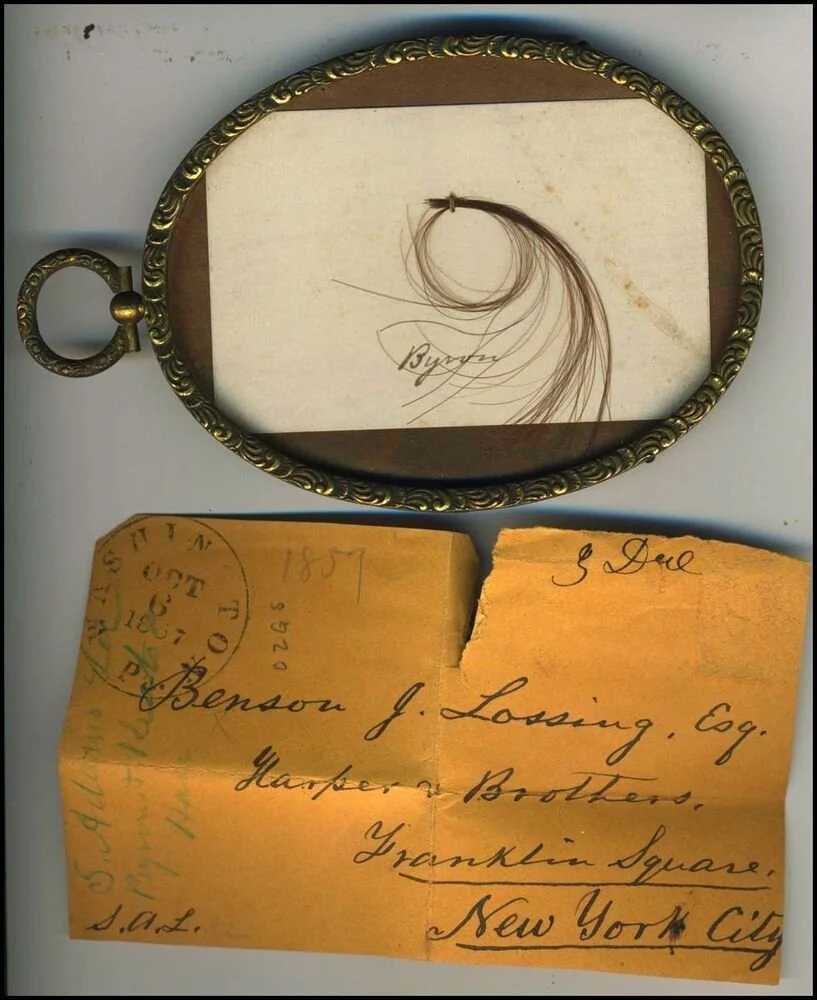 Byron
WASHINGTON
OCT
1857
1857
02GS
3 Due
Benson J. Lossing, Esq.
Harper & Brothers,
Franklin Square.
New York City
S. Adams
Byron
Hair
S.A.L.